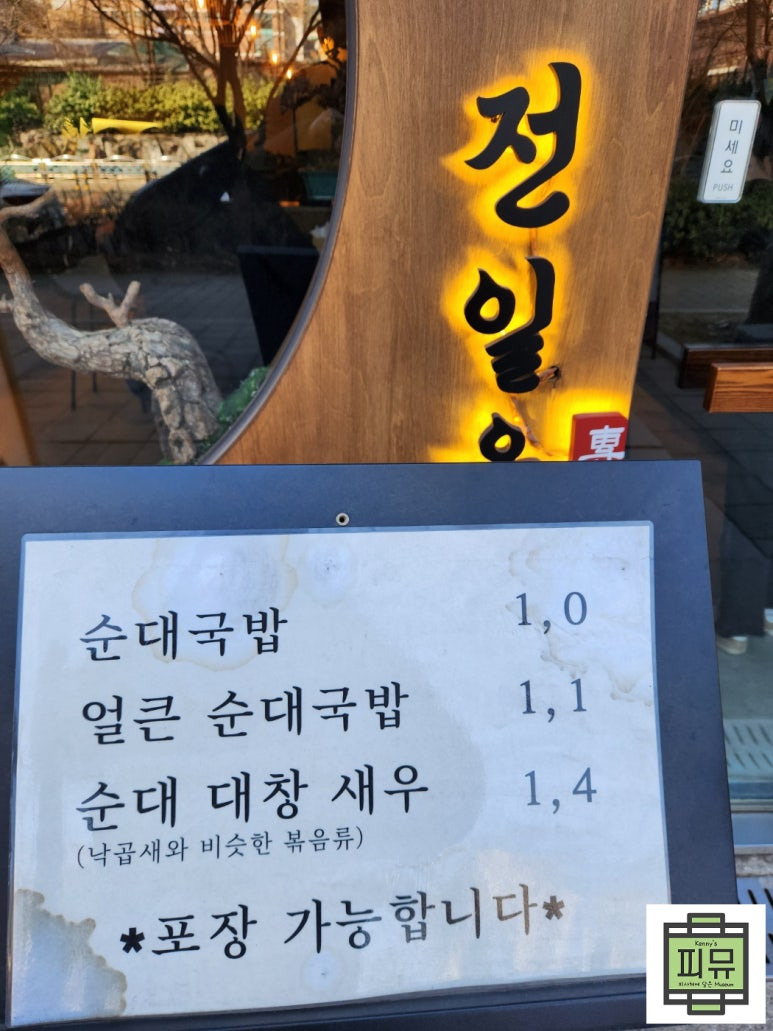 전
일
미세요
PUSH
순대국밥 1,0
얼큰 순대국밥 1,1
순대 대창 새우 1,4
(낙곱새와 비슷한 볶음류)
*포장 가능합니다*
Kenny's
피뮤